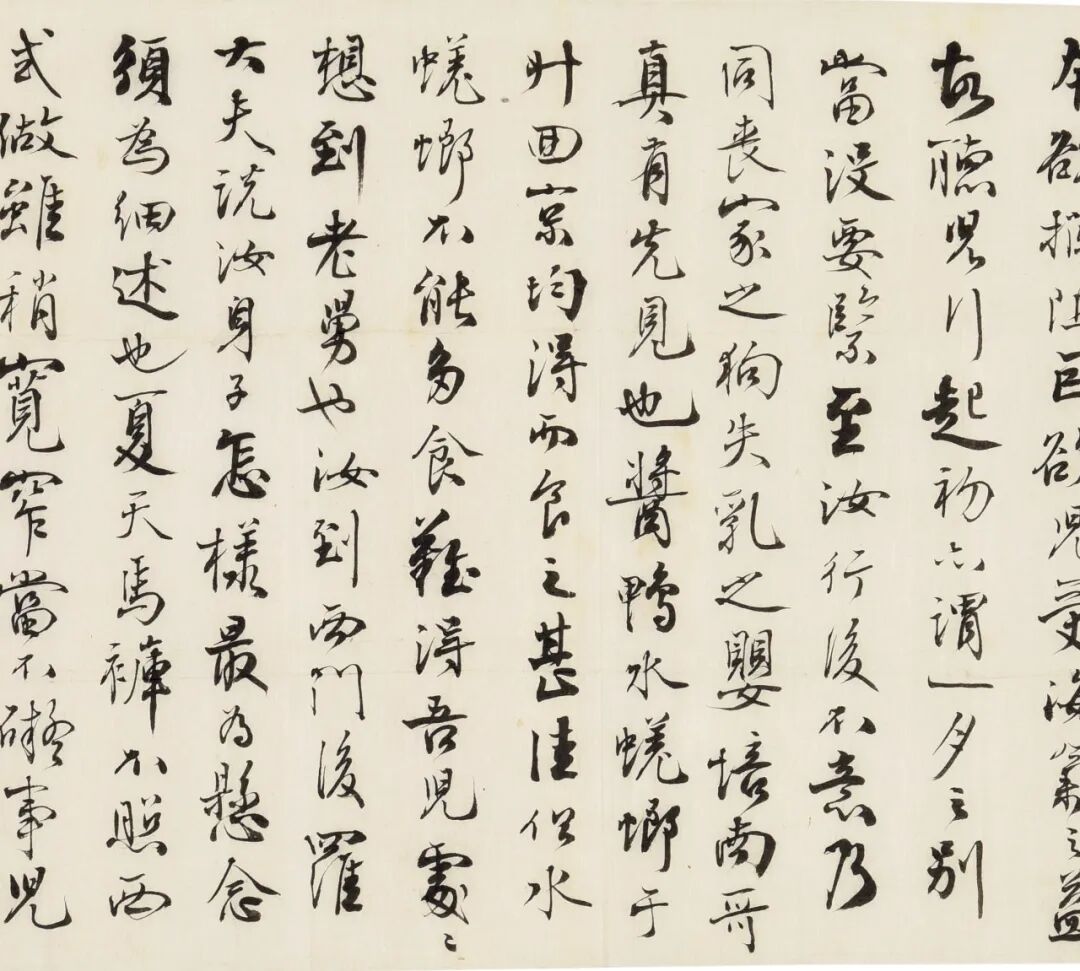 本欲推阻臣欲児受海業之益
故聽児行起初亦謂一夕之別
當没要緊至汝行後不意乃
同喪家之狗失乳之嬰培南哥
真有先見也醬鴨水蟛螂于
廿回京均得而食之甚佳但水
蟛螂不能多食難得吾児處〻
想到老舅也汝到西門後羅
大夫説汝身子怎様最為懸念
須為細述也夏天馬褲不照西
式做雖稍寬窄當不礙事児